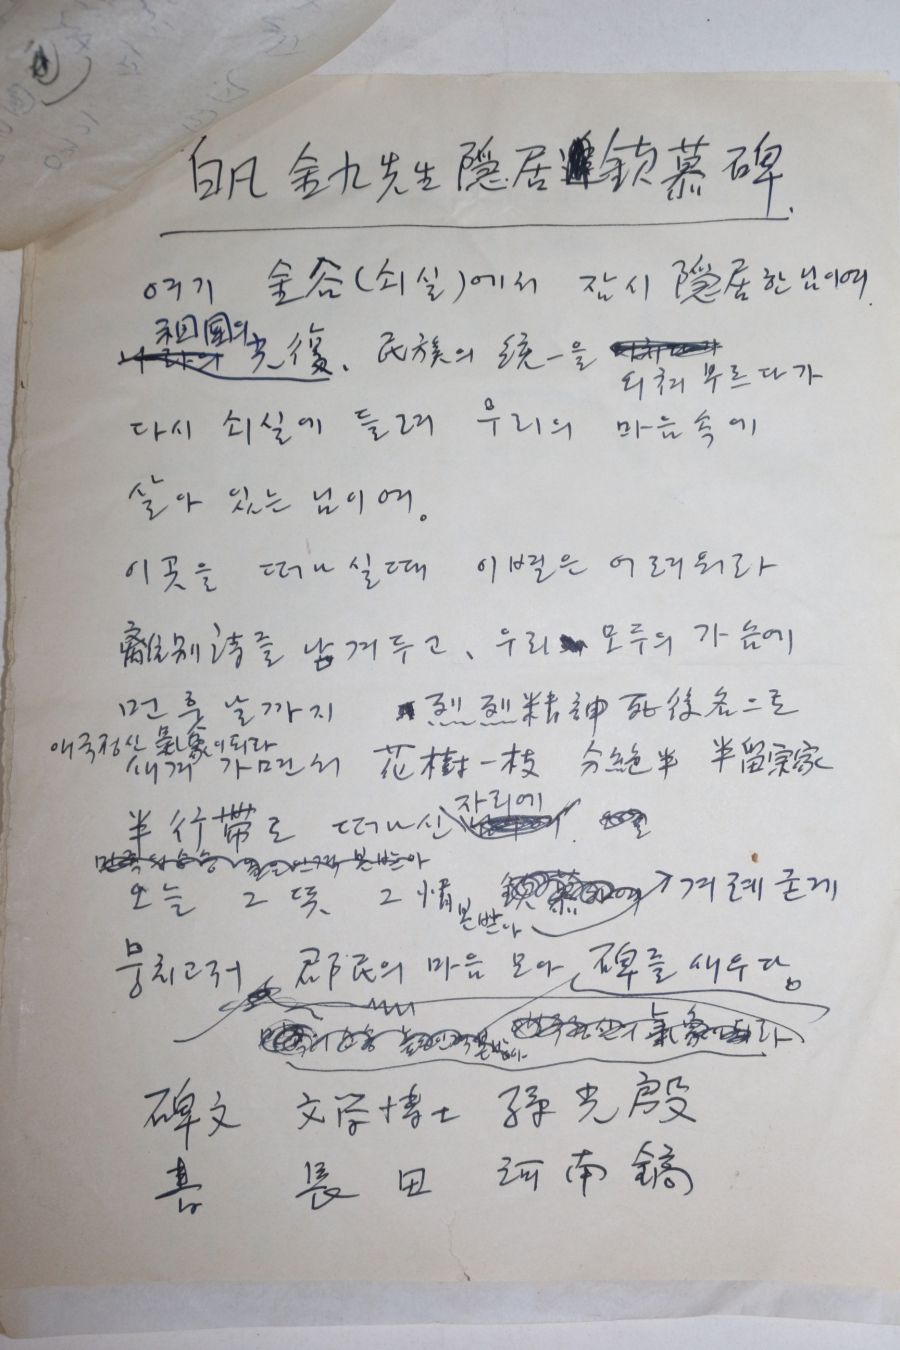 白凡 金九先生 隠居 鎖慕碑.
여기 金谷(쇠실)에서 잠시 隱居한 님이여
祖國의
光復、民族의 統一을
외쳐 부르다가
다시 쇠실에 들려 우리의 마음속에
살아 있는 님이여。
이곳을 떠나실때 이별은 어려워라
離別詩를 남겨두고、우리 모두의 가슴에
먼 훗날까지 烈烈精神死後名으로
애국정신 氣象이되라
새겨 가면서 花樹一枝 分絶半 半留宗家
半行帶로 떠나신
자리에
오늘 그 뜻、그 情 겨레 굳게
본받아
뭉치고저 郡民의 마음 모아 碑를 세우다。
碑文 文学博士 孫光殷
書 長田 河南鎬